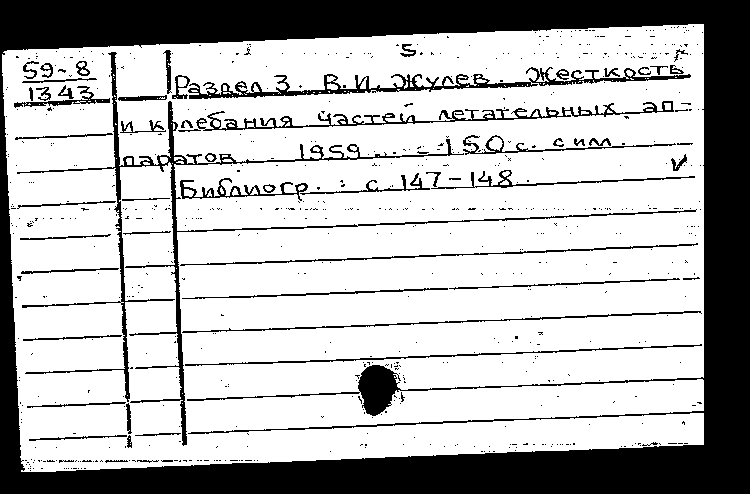 5.
59-8
1343
Раздел 3. В.И. Жулев. Жесткость
и колебания частей летательных ап-
паратов. 1959. - 150 с. с илл.
Библиогр.: с. 147-148.